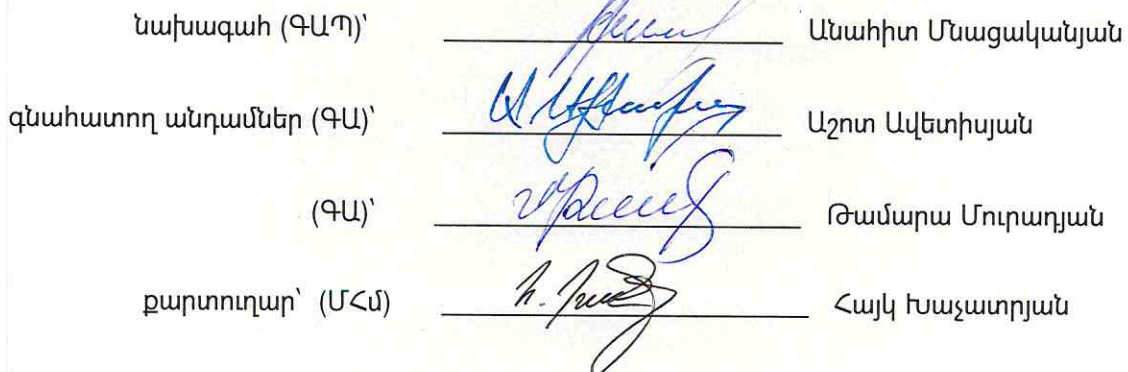 նախագահ (ԳԱՊ)՝ Անահիտ Մնացականյան
գնահատող անդամներ (ԳԱ)՝ Աշոտ Ավետիսյան
(ԳԱ)՝ Թամարա Մուրադյան
քարտուղար՝ (ՄՀմ) Հայկ Խաչատրյան